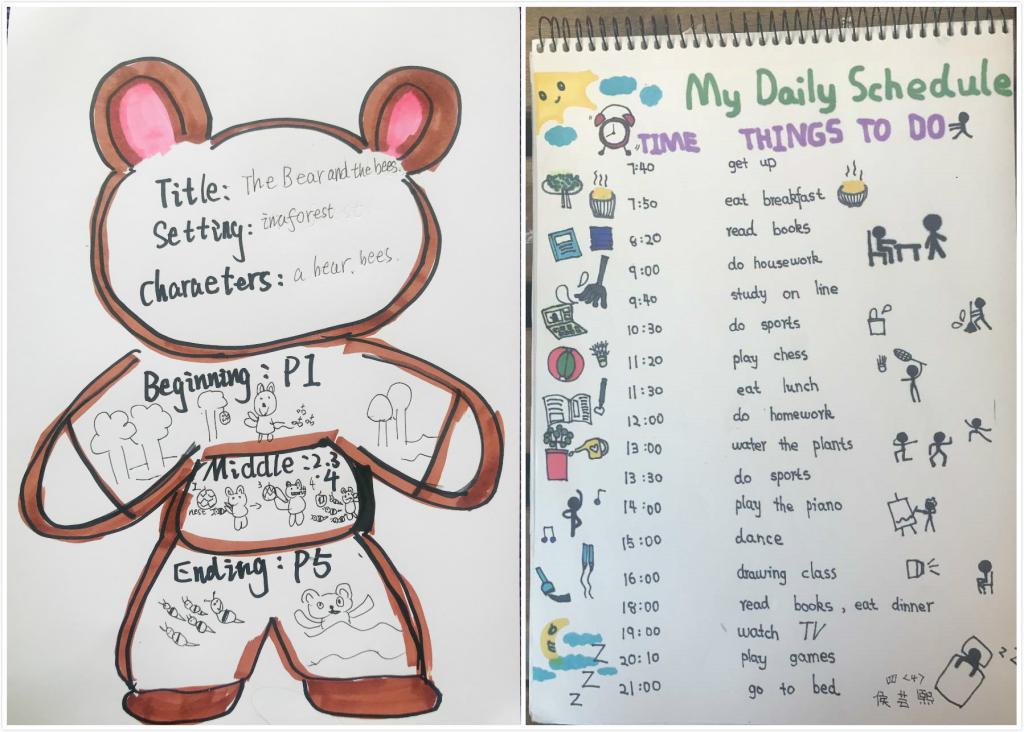 Title: The Bear and the bees.
Setting: in a forest
Characters: a bear. bees.
Beginning: P1
Middle: 2.3
4
nest
3
4
Ending: P5
My Daily Schedule
TIME THINGS TO DO
7:40 get up
7:50 eat breakfast
8:20 read books
9:00 do housework
9:40 study on line
10:30 do sports
11:20 play chess
11:30 eat lunch
12:00 do homework
13:00 water the plants
13:30 do sports
14:00 play the piano
15:00 dance
16:00 drawing class
18:00 read books, eat dinner
19:00 watch TV
20:10 play games
21:00 go to bed
Z
Z
Z
z z
四<4>
熙